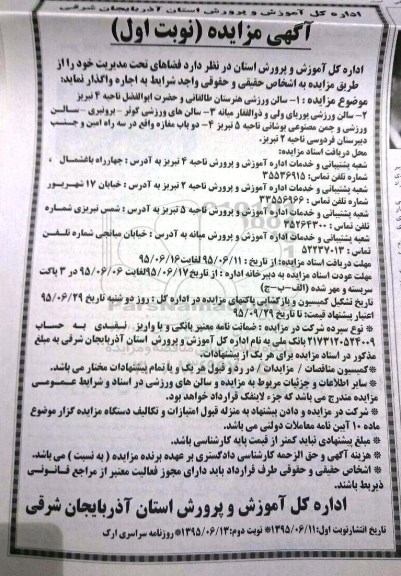 اداره کل آموزش و پرورش استان آذربایجان شرقی
آگهی مزایده (نوبت اول)
اداره کل آموزش و پرورش استان در نظر دارد فضاهای تحت مدیریت خود را از
طریق مزایده به اشخاص حقیقی و حقوقی واجد شرایط به اجاره واگذار نماید:
موضوع مزایده : ۱- سالن ورزشی هنرستان طالقانی و حضرت ابوالفضل ناحیه ۴ تبریز
۲- سالن ورزشی پوریای ولی و ذوالفقار میانه ۳- سالن های ورزشی کوثر - پروتیری - سالن
ورزشی و چمن مصنوعی یوشانی ناحیه ۵ تبریز ۴- دو باب مغازه واقع در سه راه امین و جنب
دبیرستان فردوسی ناحیه ۲ تبریز.
محل دریافت اسناد مزایده:
شعبه پشتیبانی و خدمات اداره آموزش و پرورش ناحیه ۴ تبریز به آدرس : چهارراه باغشمال ،
شماره تلفن تماس: ۳۵۵۳۶۹۱۵
شعبه پشتیبانی و خدمات اداره آموزش و پرورش ناحیه ۲ تبریز به آدرس : خیابان ۱۷ شهریور
شماره تلفن تماس : ۳۳۵۵۶۹۶۶
شعبه پشتیبانی و خدمات اداره آموزش و پرورش ناحیه ۵ تبریز به آدرس : شمس تبریزی شماره
تلفن تماس : ۳۵۲۶۴۳۰۰
شعبه پشتیبانی و خدمات اداره آموزش و پرورش میانه به آدرس : خیابان میانجی شماره تلفن
تماس : ۵۲۲۳۷۰۱۳
مهلت دریافت اسناد مزایده: از تاریخ : ۹۵/۰۶/۱۱ لغایت ۹۵/۰۶/۱۶
مهلت عودت اسناد مزایده به دبیرخانه اداره : از تاریخ ۹۵/۰۶/۱۷ لغایت ۹۵/۰۶/۰۶ در ۳ پاکت
سربسته و مهر شده (الف-ب-ج)
تاریخ تشکیل کمیسیون و بازگشایی پاکتهای مزایده در اداره کل : روز دو شنبه تاریخ ۹۵/۰۶/۲۹
اعتبار پیشنهاد قیمت: تا تاریخ ۹۵/۰۹/۲۹
* نوع سپرده شرکت در مزایده : ضمانت نامه معتبر بانکی و یا واریز نقدی به حساب
۲۱۷۳۱۲۰۵۲۴۰۰۹ بانک ملی به نام اداره کل آموزش و پرورش استان آذربایجان شرقی به مبلغ
مذکور در اسناد مزایده برای هر یک از پیشنهادات.
*کمیسیون مناقصات / مزایدات / در رد و قبول هر یک و یا تمام پیشنهادات مختار می باشد.
* سایر اطلاعات و جزئیات مربوط به مزایده و سالن های ورزشی در اسناد و شرایط عمومی
مزایده مندرج می باشد که جزء لاینفک قرارداد خواهد بود.
* شرکت در مزایده و دادن پیشنهاد به منزله قبول امتیازات و تکالیف دستگاه مزایده گزار موضوع
ماده ۱۰ آیین نامه معاملات دولتی می باشد.
* مبلغ پیشنهادی نباید کمتر از قیمت پایه کارشناسی باشد.
* هزینه آگهی و حق الزحمه کارشناسی دادگستری بر عهده برنده مزایده ( به نسبت ) می باشد.
* اشخاص حقیقی و حقوقی طرف قرارداد باید دارای مجوز فعالیت معتبر از مراجع قانونی
ذیربط باشند.
اداره کل آموزش و پرورش استان آذربایجان شرقی
تاریخ انتشارنوبت اول:۱۳۹۵/۰۶/۱۱* نوبت دوم:۱۳۹۵/۰۶/۱۳*روزنامه سراسری ارک